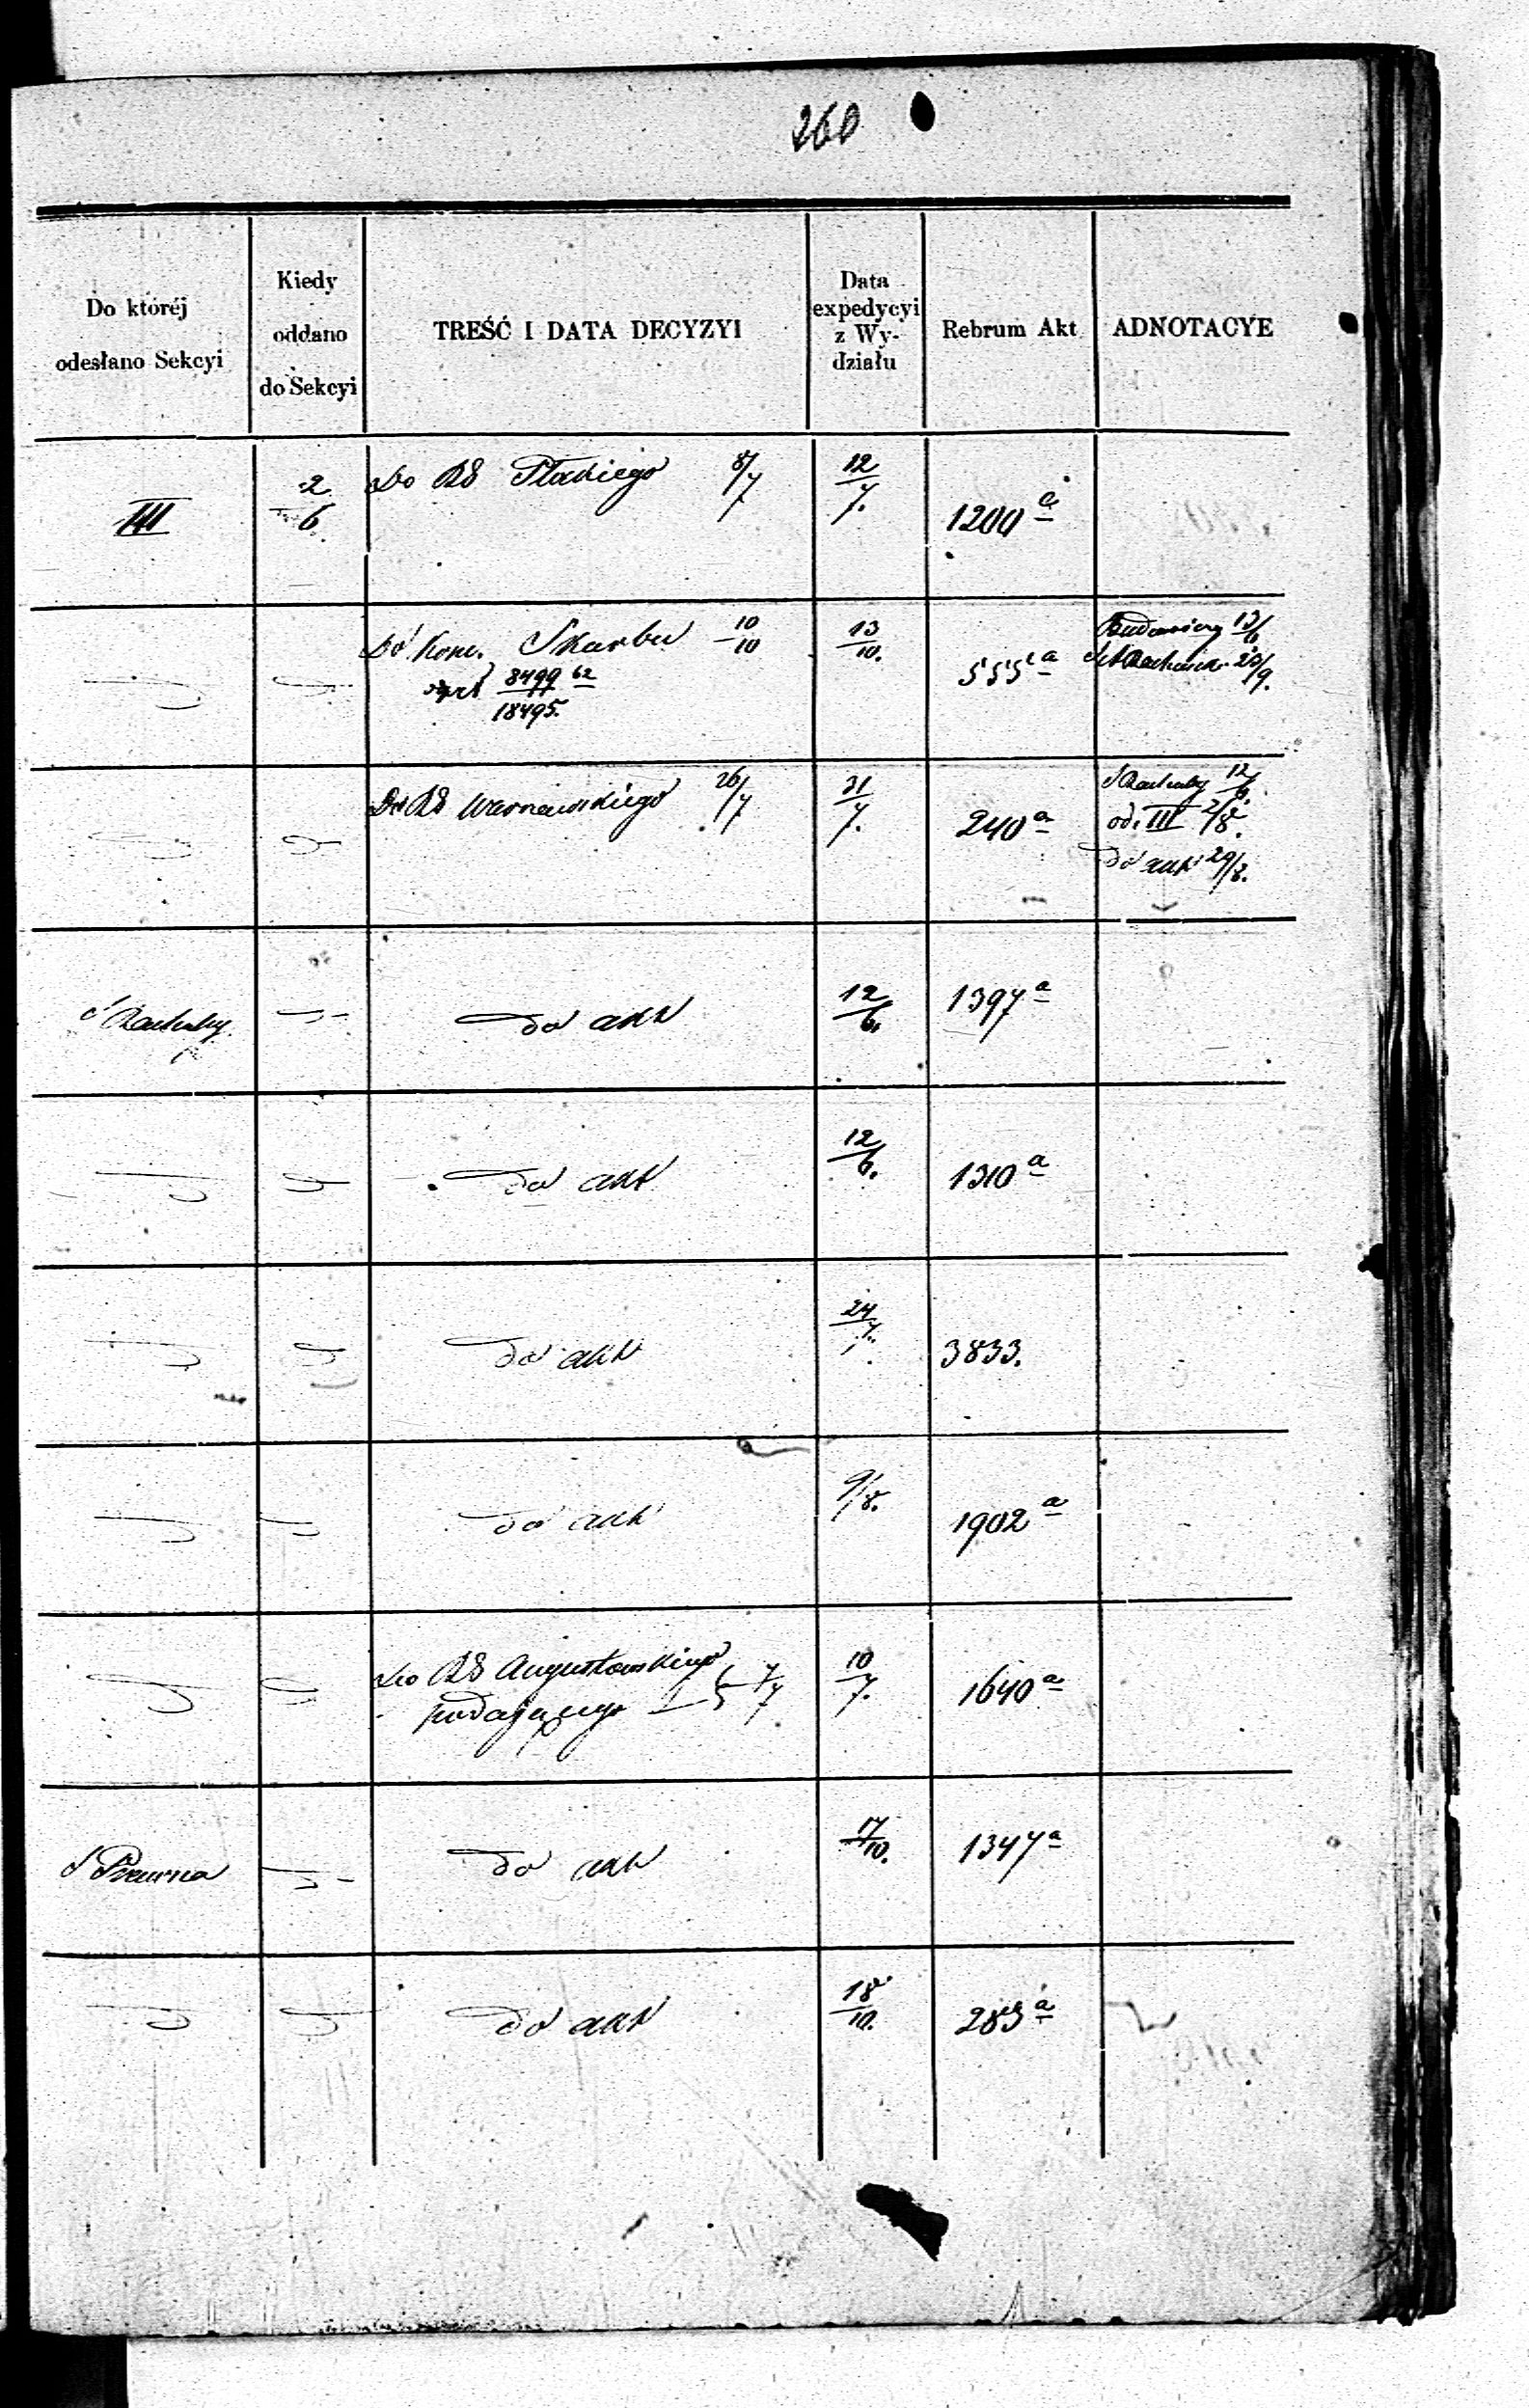 260
Do któréj
odesłano Sekcyi
Kiedy
oddano
do Sekcyi
TREŚĆ I DATA DECYZYI
Data
expedycyi
z Wy-
działu
Rebrum Akt
ADNOTACYE
III
2/6
Do RG Płockiego 8/7
12/7.
1200 a
Do Kom. Skarbu 10/10
8499 62
18495.
13/10.
555 a
13/6
23/9.
Do RG Warszawskiego 26/7
31/7.
240 a
S Rachuby 12/6.
od. III 2/8.
do akt 29/8.
S Rachuby
do akt
12/6.
1397 a
do akt
12/6.
1310 a
do akt
24/7.
3833.
do akt
9/8.
1902 a
Do RG Augustowskiego
podającego 7/7
10/7.
1640 a
S Prawna
do akt
17/10.
1347 a
do akt
18/10.
283 a